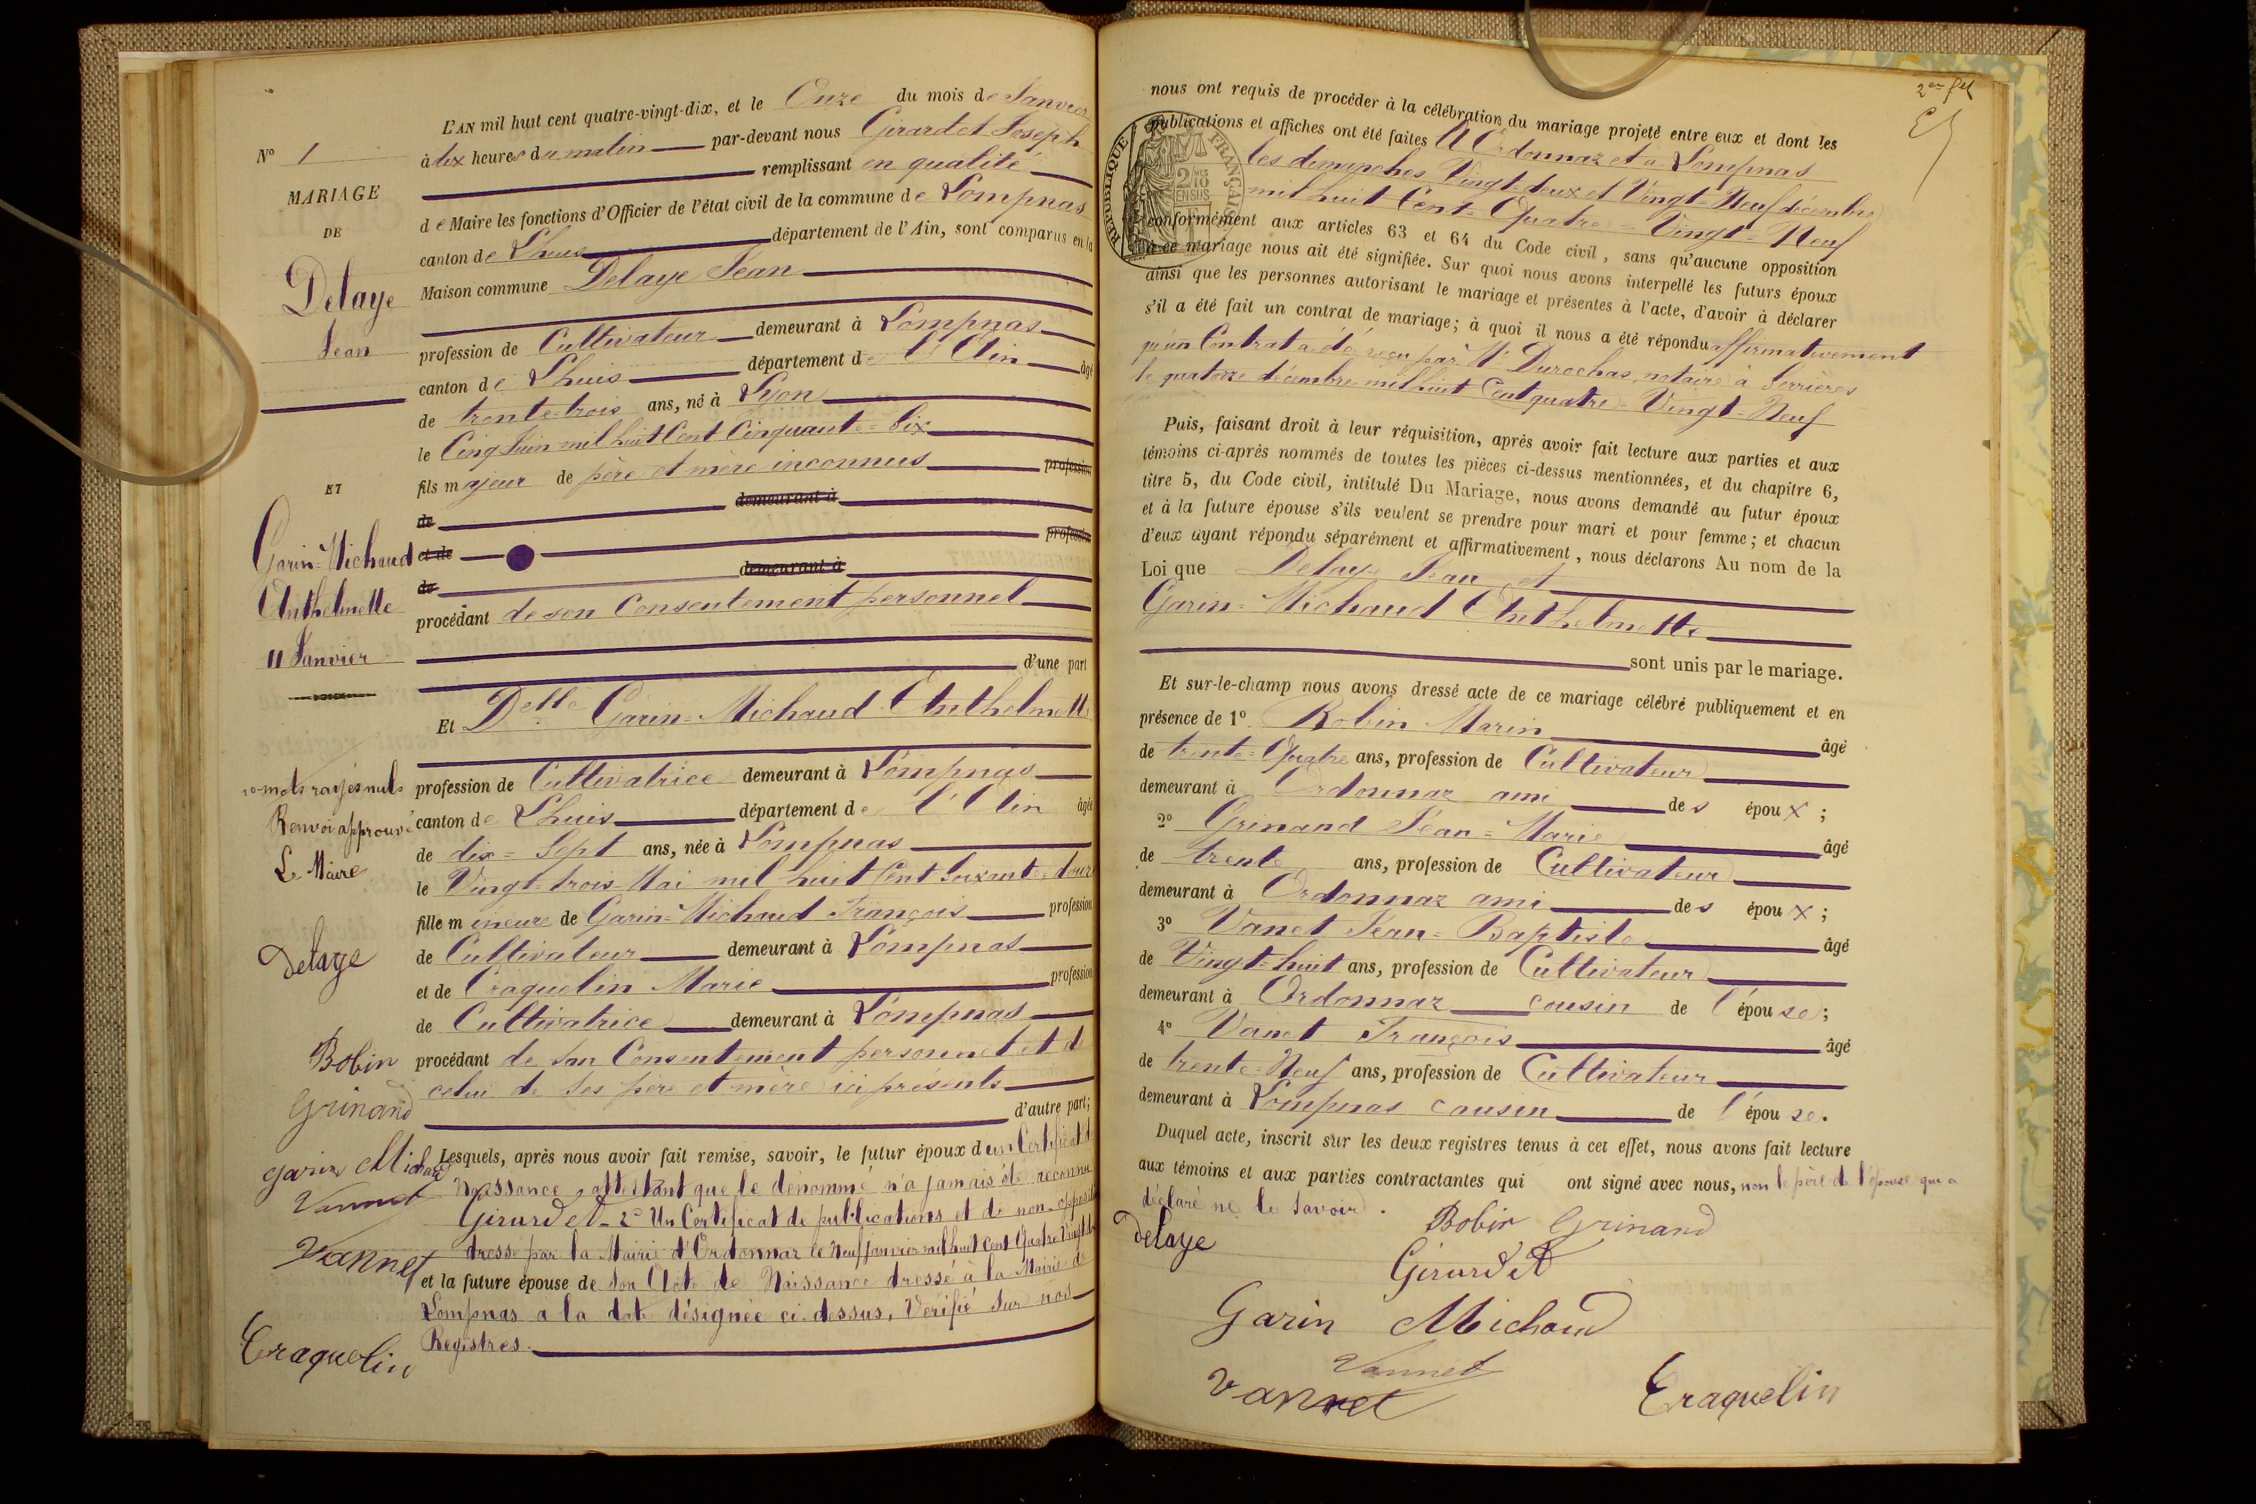 N° 1
MARIAGE
DE
Delaye
Jean
ET
Garin-Michaud
Anthelmette
11 Janvier
10 mots rayés nuls
Renvoi approuvé
Le Maire
Delaye
Bobin
Grinand
garin Michaud
Vannet
Vannet
Craquelin
L'AN mil huit cent quatre-vingt-dix, et le Onze du mois de Janvier
à dix heures du matin par-devant nous Girardet Joseph
remplissant en qualité
de Maire les fonctions d'Officier de l'état civil de la commune de Lompnas
canton de Lhuis département de l'Ain, sont comparus en la
Maison commune Delaye Jean
profession de Cultivateur demeurant à Lompnas
canton de Lhuis département de l'Ain âgé
de trente-trois ans, né à Lyon
le Cinq Juin mil huit Cent Cinquante-Six
fils majeur de père et mère inconnus profession
de demeurant à
et de profession
de demeurant à
procédant de son Consentement personnel
d'une part
Et Delle Garin-Michaud Anthelmette
profession de Cultivatrice demeurant à Lompnas
canton de Lhuis département de l'Ain âgée
de dix-Sept ans, née à Lompnas
le Vingt-trois Mai mil huit Cent Soixante-douze
fille mineure de Garin-Michaud François profession
de Cultivateur demeurant à Lompnas
et de Craquelin Marie profession
de Cultivatrice demeurant à Lompnas
procédant de son Consentement personnel et de
celui de ses père et mère ici présents
d'autre part;
Lesquels, après nous avoir fait remise, savoir, le futur époux d'un Certificat de
Naissance, attestant que le dénommé n'a jamais été reconnu
Girardet - 2° Un Certificat de publications et de non-opposition
dressé par la Mairie d'Ordonnaz le Neuf janvier mil huit Cent Quatre Vingt dix
et la future épouse de Son Acte de Naissance dressé à la Mairie de
Lompnas a la date désignée ci-dessus, Vérifié Sur nos
Registres.
nous ont requis de procéder à la célébration du mariage projeté entre eux et dont les
publications et affiches ont été faites A Ordonnaz et a Lompnas
les dimanches Vingt-deux et Vingt-Neuf décembre
mil huit Cent-Quatre-Vingt-Neuf
conformément aux articles 63 et 64 du Code civil, sans qu'aucune opposition
à ce mariage nous ait été signifiée. Sur quoi nous avons interpellé les futurs époux
ainsi que les personnes autorisant le mariage et présentes à l'acte, d'avoir à déclarer
s'il a été fait un contrat de mariage; à quoi il nous a été répondu affirmativement
qu'un Contrat a été reçu par Me Durochas, notaire à Serrières
le quatorze décembre mil huit Cent quatre-Vingt-Neuf
Puis, faisant droit à leur réquisition, après avoir fait lecture aux parties et aux
témoins ci-après nommés de toutes les pièces ci-dessus mentionnées, et du chapitre 6,
titre 5, du Code civil, intitulé Du Mariage, nous avons demandé au futur époux
et à la future épouse s'ils veulent se prendre pour mari et pour femme; et chacun
d'eux ayant répondu séparément et affirmativement, nous déclarons Au nom de la
Loi que Delaye Jean et
Garin-Michaud Anthelmette
sont unis par le mariage.
Et sur-le-champ nous avons dressé acte de ce mariage célébré publiquement et en
présence de 1° Bobin Marin âgé
de trente-Quatre ans, profession de Cultivateur
demeurant à Ordonnaz ami des époux;
2° Grinand Jean-Marie âgé
de trente ans, profession de Cultivateur
demeurant à Ordonnaz ami des époux;
3° Vanet Jean-Baptiste âgé
de Vingt-huit ans, profession de Cultivateur
demeurant à Ordonnaz cousin de l'épouse;
4° Vanet François âgé
de trente-Neuf ans, profession de Cultivateur
demeurant à Lompnas cousin de l'épouse.
Duquel acte, inscrit sur les deux registres tenus à cet effet, nous avons fait lecture
aux témoins et aux parties contractantes qui ont signé avec nous, non le père de l'épouse qui a
déclaré ne le Savoir.
Bobin Grinand
delaye
Girardet
Garin Michaud
Vannet
Vannet
Craquelin
RÉPUBLIQUE FRANÇAISE